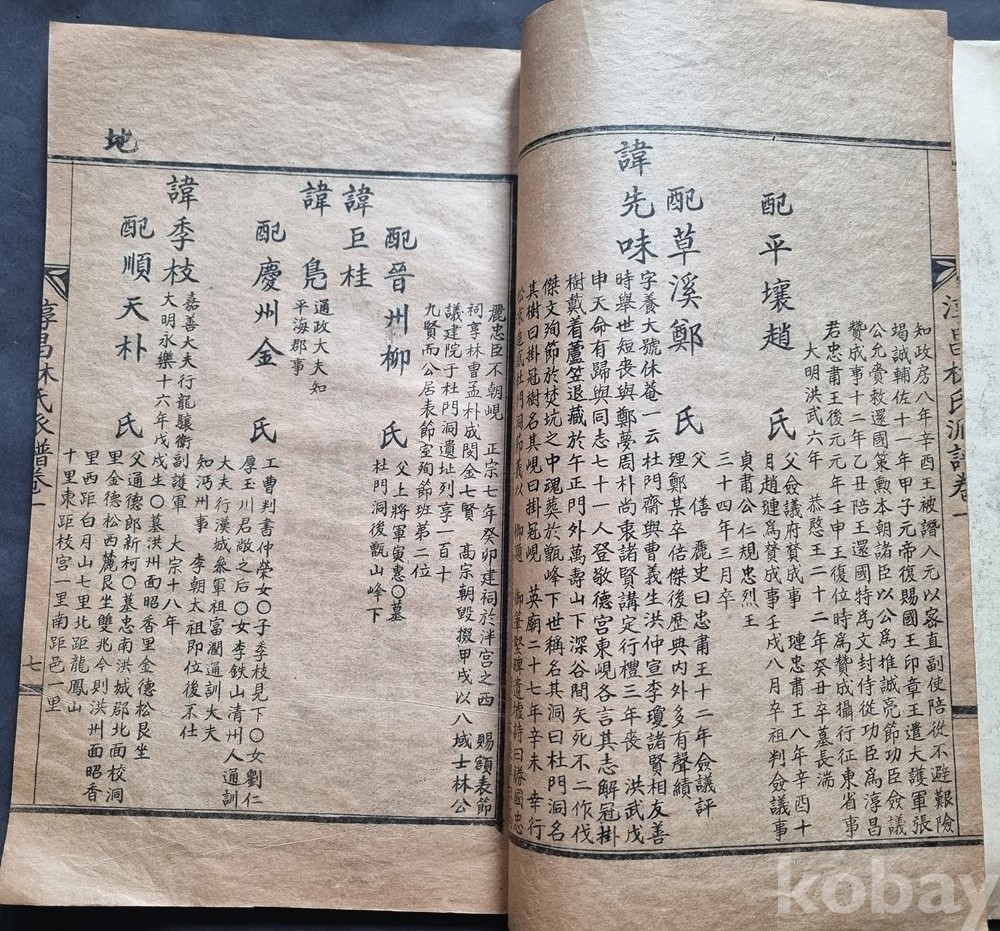 淳昌林氏派譜卷一
知政房八年辛酉王被譖入元以容直副使陪從不避艱險
竭誠輔佐十年甲子元帝復賜國王印章王遣大護軍張
公允賫敎還國策勲本朝諸臣以公為推誠亮節功臣僉議
贊成事十二年乙丑陪王還國特為文封侍從功臣爲淳昌
君忠肅王後元元年壬申王復位時爲贊成攝行征東省事
大明洪武六年 恭愍王二十二年癸丑卒墓長湍
配平壤趙 氏
父僉議府贊成事 璉忠肅王八年辛酉十
月趙璉為贊成事壬戌八月卒祖判僉議事
貞肅公仁規忠烈王
三十四年三月卒
配草溪鄭 氏
父 僐 麗史曰忠肅王十二年僉議評
理鄭某卒佶傑後歷典内外多有聲績
諱先味
字養大號休菴一云杜門齋與曹義生洪仲宣李瓊諸賢相友善
時擧世短喪與鄭夢周朴尚衷諸賢講定行禮三年喪 洪武戊
申天命有歸與同志七十一人登敬德宮東峴各言其志解冠掛
樹戴着蘆笠退藏於午正門外萬壽山下深谷間矢死不二作伐
傑文殉節於焚坑之中魂葬於甑峰下世稱名其洞曰杜門洞名
其樹曰掛冠樹名其峴曰掛冠峴 英廟二十七年辛未 幸行
麗忠臣不朝峴 正宗七年癸卯建祠於泮宮之西 賜額表節
祠享林曹孟朴成閔金七賢 高宗朝毁撤甲戌以八域士林公
議建院于杜門洞遺址列享一百十
九賢而公居表節室殉節班第二位
配晉州柳 氏
父上將軍寅惠〇墓
杜門洞後甑山峰下
諱巨桂
諱鳧
通政大夫知
平海郡事
配慶州金 氏
工曹判書仲榮女〇子季枝見下〇女劉仁
厚玉川君敞之后〇女李鉄山清州人通訓
大夫行漢城叅軍祖富濶通訓大夫
知沔州事 李朝太祖即位後不仕
諱季枝
嘉善大夫行龍驤衛副護軍 大宗十八年
大明永樂十六年戊戌生〇墓洪州面昭香里金德松艮坐
配順天朴 氏
父通德郎新柯〇墓忠南洪城郡北面校洞
里金德松西麓艮坐雙兆今則洪州面昭香
里西距白月山七里北距龍鳳山
十里東距校宫一里南距邑一里
七
地
kobay